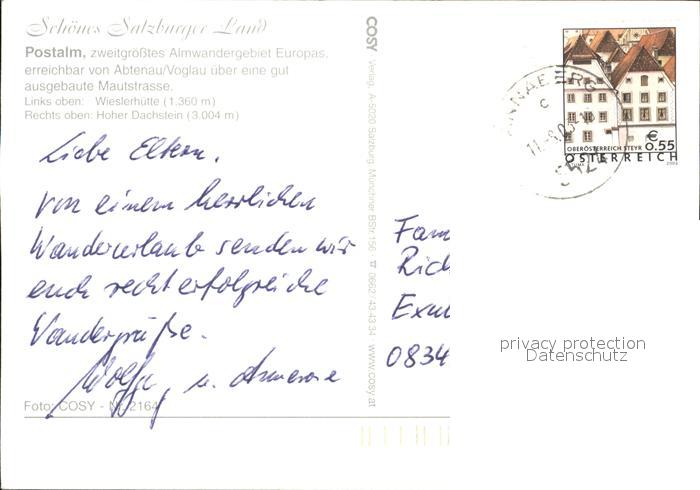 Schönes Salzburger Land
Postalm, zweitgrößtes Almwandergebiet Europas,
erreichbar von Abtenau/Voglau über eine gut
ausgebaute Mautstrasse.
Links oben: Wieslerhütte (1.360 m)
Rechts oben: Hoher Dachstein (3.004 m)
Liebe Eltern,
von einem herrlichen
Wanderurlaub senden wir
euch recht erfolgreiche
Wandergrüße.
Wolfg. u. Annerose
Foto: COSY - Nr. 2164
COSY Verlag, A-5020 Salzburg, Münchner BStr. 156 ☎ 0662/ 43-43-34 www.cosy.at
ANNABERG
OBERÖSTERREICH STEYR
€ 0.55
ÖSTERREICH
Fam
Rich
0834
privacy protection
Datenschutz